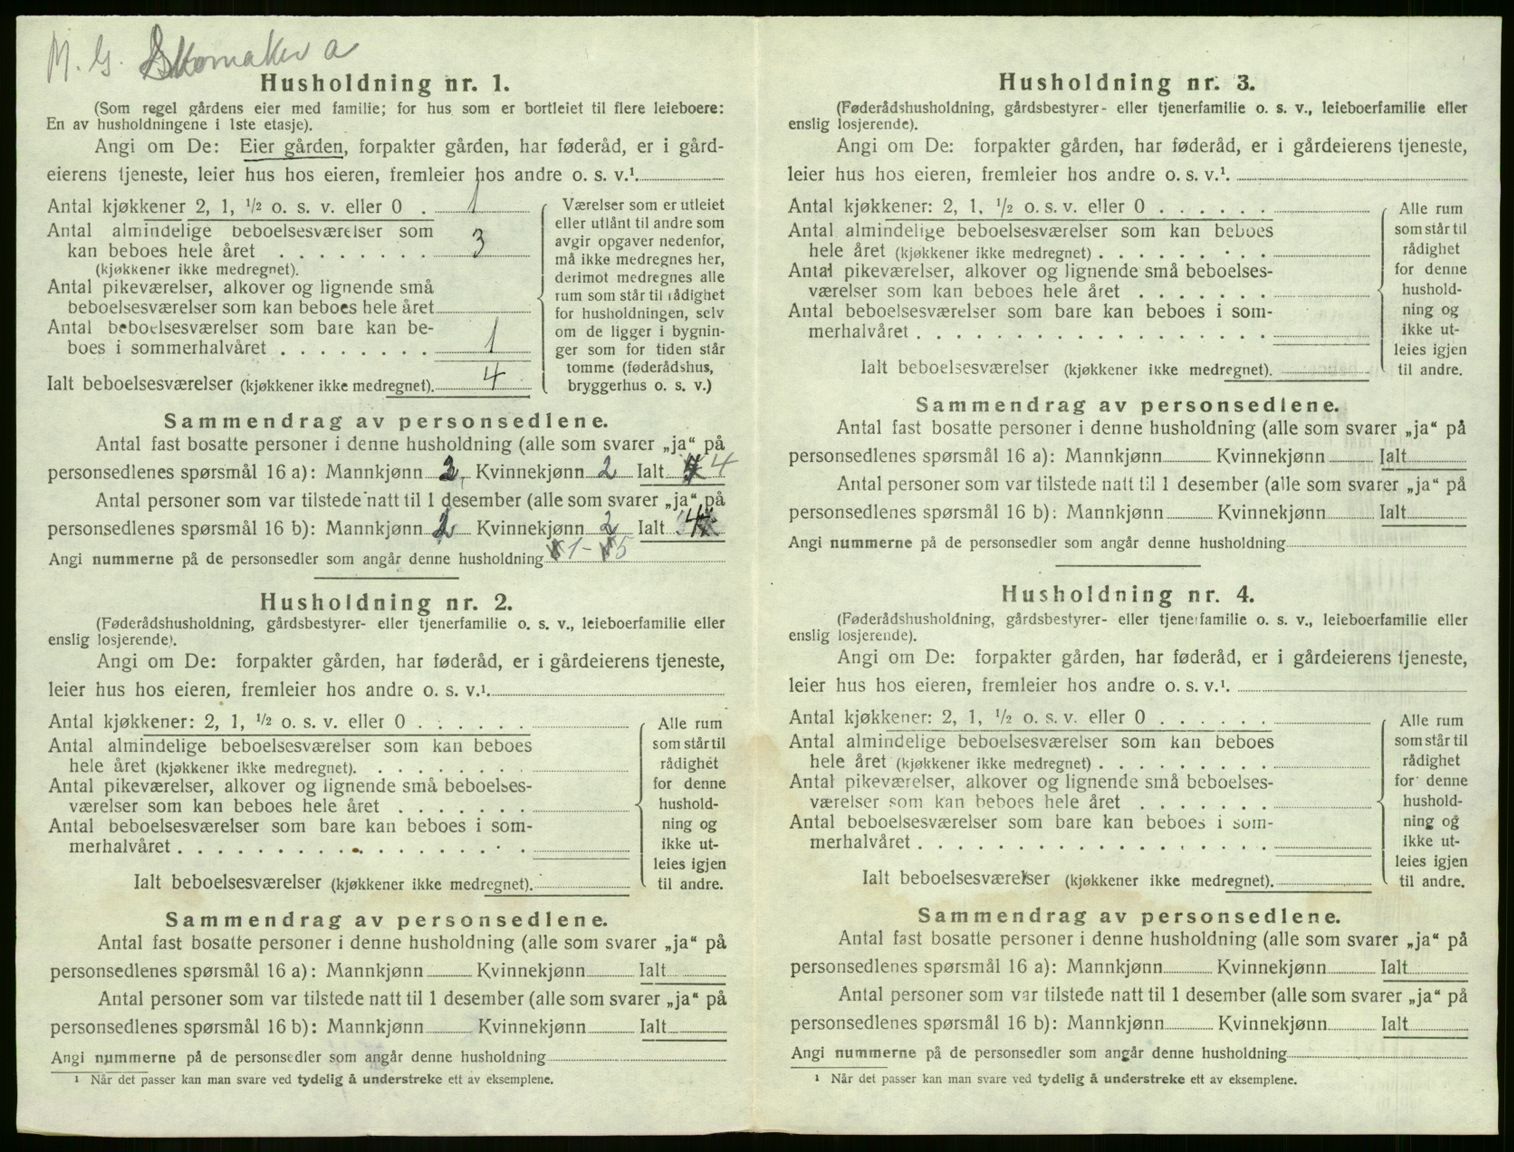 M. G. Skomaker a
Husholdning nr. 1.
(Som regel gårdens eier med familie; for hus som er bortleiet til flere leieboere:
En av husholdningene i 1ste etasje).
Angi om De: Eier gården, forpakter gården, har føderåd, er i gård-
eierens tjeneste, leier hus hos eieren, fremleier hos andre o. s. v.¹
Antal kjøkkener 2, 1, ½ o. s. v. eller 0 . 1
Antal almindelige beboelsesværelser som
kan beboes hele året . . . . . . . . 3
(kjøkkener ikke medregnet).
Antal pikeværelser, alkover og lignende små
beboelsesværelser som kan beboes hele året
Antal beboelsesværelser som bare kan be-
boes i sommerhalvåret . . . . . . . . 1
Ialt beboelsesværelser (kjøkkener ikke medregnet). 4
Værelser som er utleiet
eller utlånt til andre som
avgir opgaver nedenfor,
må ikke medregnes her,
derimot medregnes alle
rum som står til rådighet
for husholdningen, selv
om de ligger i bygnin-
ger som for tiden står
tomme (føderådshus,
bryggerhus o. s. v.)
Sammendrag av personsedlene.
Antal fast bosatte personer i denne husholdning (alle som svarer „ja“ på
personsedlenes spørsmål 16 a): Mannkjønn 2 Kvinnekjønn 2 Ialt 4
Antal personer som var tilstede natt til 1 desember (alle som svarer „ja“ på
personsedlenes spørsmål 16 b): Mannkjønn 2 Kvinnekjønn 2 Ialt 4
Angi nummerne på de personsedler som angår denne husholdning 1-5
Husholdning nr. 2.
(Føderådshusholdning, gårdsbestyrer- eller tjenerfamilie o. s. v., leieboerfamilie eller
enslig losjerende).
Angi om De: forpakter gården, har føderåd, er i gårdeierens tjeneste,
leier hus hos eieren, fremleier hos andre o. s. v.¹
Antal kjøkkener: 2, 1, ½ o. s. v. eller 0 . . . . . .
Antal almindelige beboelsesværelser som kan beboes
hele året (kjøkkener ikke medregnet). . . . . . . . .
Antal pikeværelser, alkover og lignende små beboelses-
værelser som kan beboes hele året . . . . . . .
Antal beboelsesværelser som bare kan beboes i som-
merhalvåret . . . . . . . . . . . . . . . . .
Ialt beboelsesværelser (kjøkkener ikke medregnet).
Alle rum
som står til
rådighet
for denne
hushold-
ning og
ikke ut-
leies igjen
til andre.
Sammendrag av personsedlene.
Antal fast bosatte personer i denne husholdning (alle som svarer „ja“ på
personsedlenes spørsmål 16 a): Mannkjønn Kvinnekjønn Ialt
Antal personer som var tilstede natt til 1 desember (alle som svarer „ja“ på
personsedlenes spørsmål 16 b): Mannkjønn Kvinnekjønn Ialt
Angi nummerne på de personsedler som angår denne husholdning
¹ Når det passer kan man svare ved tydelig å understreke ett av eksemplene.
Husholdning nr. 3.
(Føderådshusholdning, gårdsbestyrer- eller tjenerfamilie o. s. v., leieboerfamilie eller
enslig losjerende).
Angi om De: forpakter gården, har føderåd, er i gårdeierens tjeneste,
leier hus hos eieren, fremleier hos andre o. s. v.¹.
Antal kjøkkener: 2, 1, ½ o. s. v. eller 0 . . . . . .
Antal almindelige beboelsesværelser som kan beboes
hele året (kjøkkener ikke medregnet) . . . . . . . . .
Antal pikeværelser, alkover og lignende små beboelses-
værelser som kan beboes hele året . . . . . . .
Antal beboelsesværelser som bare kan beboes i som-
merhalvåret . . . . . . . . . . . . . . . . .
Ialt beboelsesværelser (kjøkkener ikke medregnet).
Alle rum
som står til
rådighet
for denne
hushold-
ning og
ikke ut-
leies igjen
til andre.
Sammendrag av personsedlene.
Antal fast bosatte personer i denne husholdning (alle som svarer „ja“ på
personsedlenes spørsmål 16 a): Mannkjønn Kvinnekjønn Ialt
Antal personer som var tilstede natt til 1 desember (alle som svarer „ja“ på
personsedlenes spørsmål 16 b): Mannkjønn Kvinnekjønn Ialt
Angi nummerne på de personsedler som angår denne husholdning
Husholdning nr. 4.
(Føderådshusholdning, gårdsbestyrer- eller tjenerfamilie o. s. v., leieboerfamilie eller
enslig losjerende).
Angi om De: forpakter gården, har føderåd, er i gårdeierens tjeneste,
leier hus hos eieren, fremleier hos andre o. s. v.¹.
Antal kjøkkener: 2, 1, ½ o. s. v. eller 0 . . . . . .
Antal almindelige beboelsesværelser som kan beboes
hele året (kjøkkener ikke medregnet) . . . . . . . . .
Antal pikeværelser, alkover og lignende små beboelses-
værelser som kan beboes hele året . . . . . . .
Antal beboelsesværelser som bare kan beboes i som-
merhalvåret . . . . . . . . . . . . . . . . .
Ialt beboelsesværelser (kjøkkener ikke medregnet).
Alle rum
som står til
rådighet
for denne
hushold-
ning og
ikke ut-
leies igjen
til andre.
Sammendrag av personsedlene.
Antal fast bosatte personer i denne husholdning (alle som svarer „ja“ på
personsedlenes spørsmål 16 a): Mannkjønn Kvinnekjønn Ialt
Antal personer som var tilstede natt til 1 desember (alle som svarer „ja“ på
personsedlenes spørsmål 16 b): Mannkjønn Kvinnekjønn Ialt
Angi nummerne på de personsedler som angår denne husholdning
¹ Når det passer kan man svare ved tydelig å understreke ett av eksemplene.